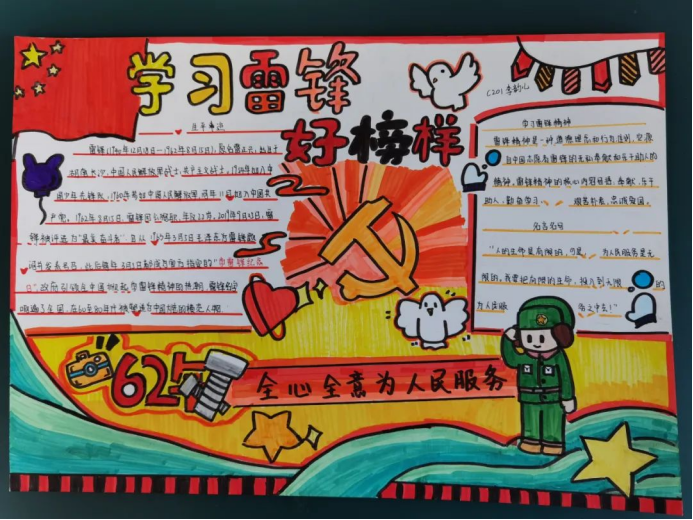 学习雷锋
好榜样
C201 李韵儿
生平事迹
雷锋(1940年12月18日—1962年8月15日),原名雷正兴,出生于
湖南长沙,中国人民解放军战士,共产主义战士。1954年加入中
国少年先锋队,1960年参加中国人民解放军,同年11月加入中国共
产党。1962年8月15日,雷锋因公殉职,年仅22岁。2019年9月25日,雷
锋被评选为"最美奋斗者"。自从1963年3月5日毛泽东为雷锋题
词并发表
日",政府
学习雷锋精神
雷锋精神是一种
精神,雷锋精神的核心内容
助人,勤奋学习 艰苦朴素,忠诚爱国。
名言名句
"人的生命是有限的,可是,为人民服务是无
限的,我要把有限的生命,投入到无限 的
为人民服 务之中去!"
62年
全心全意为人民服务